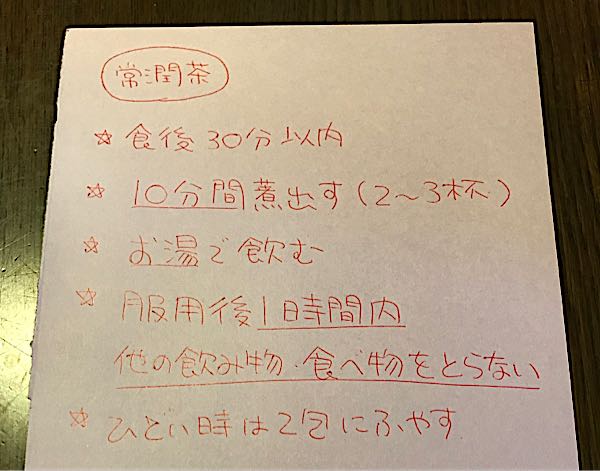 常潤茶
☆ 食後30分以内
☆ 10分間煮出す(2〜3杯)
☆ お湯で飲む
☆ 服用後1時間内
他の飲み物・食べ物をとらない
☆ ひどい時は2包にふやす